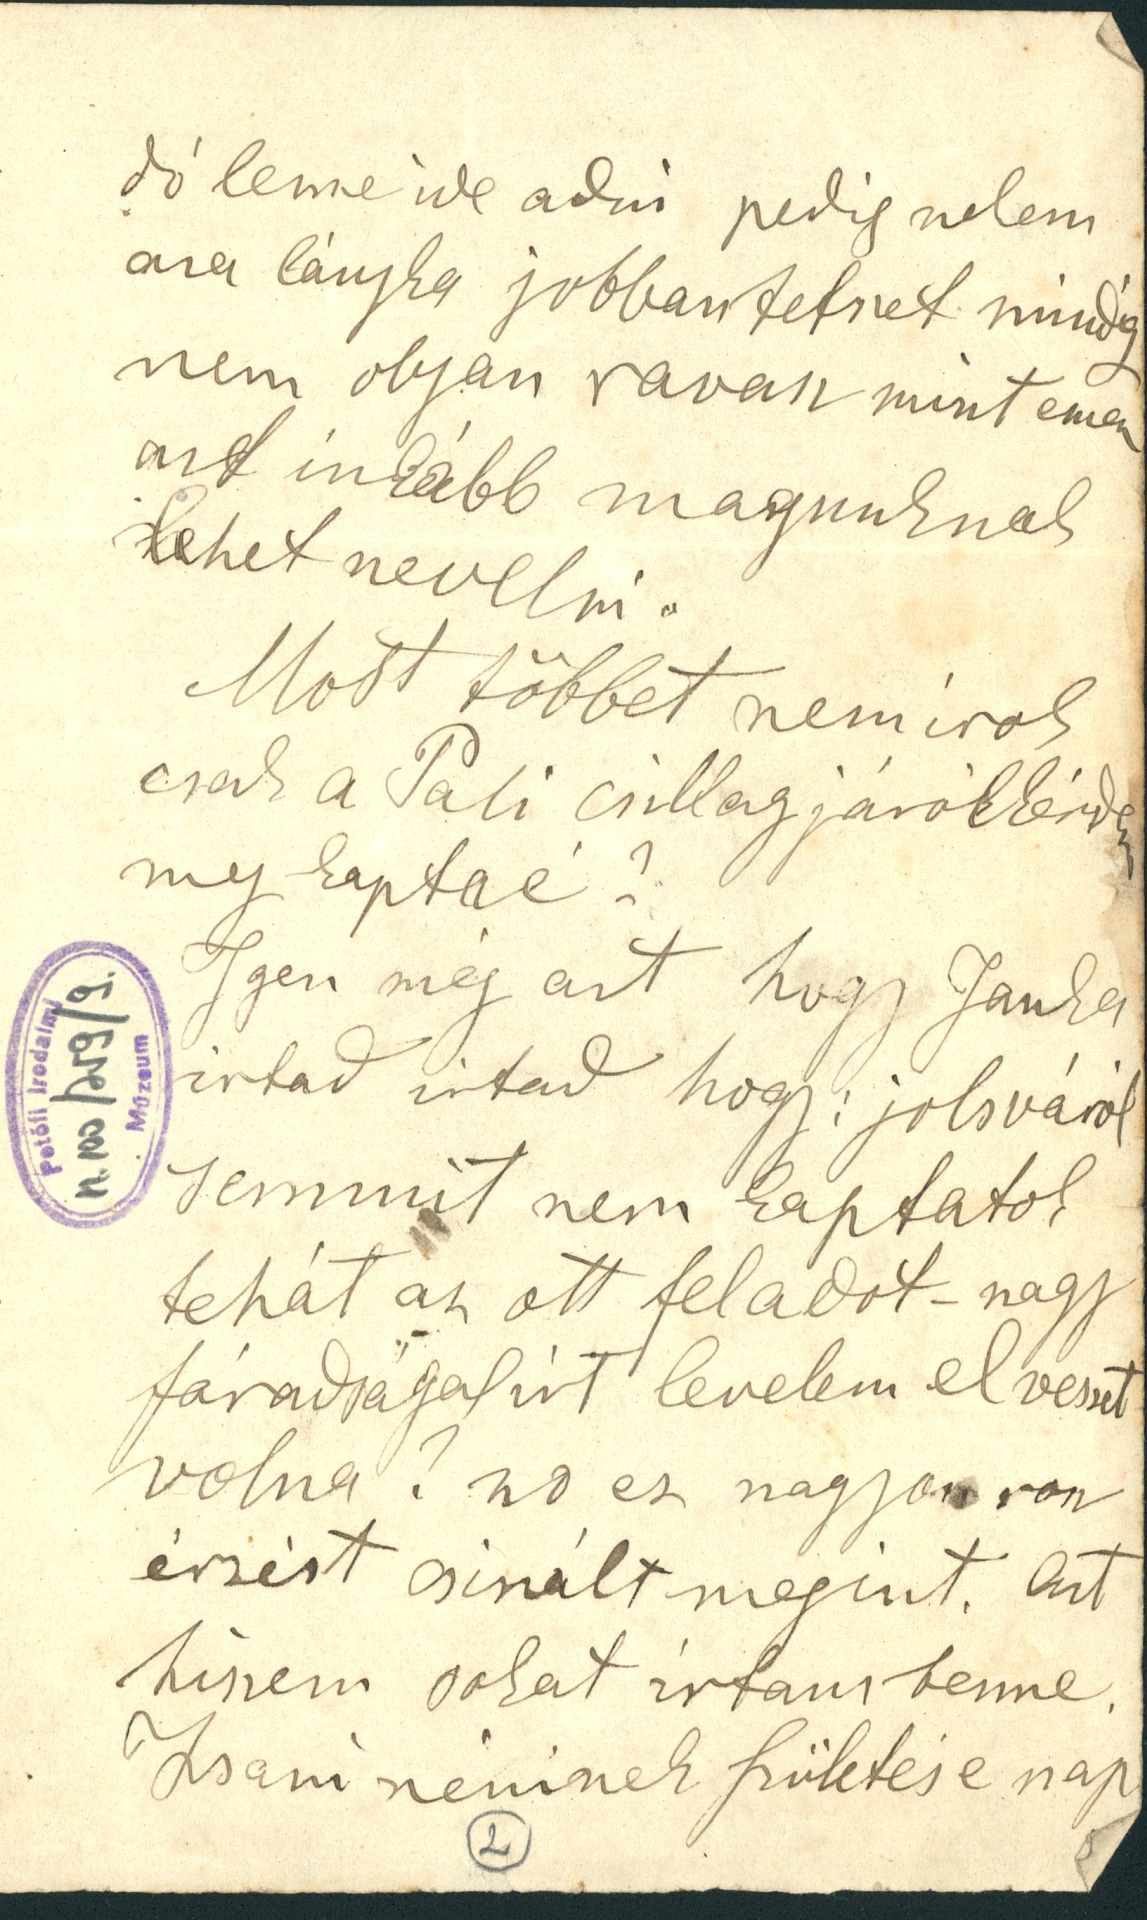 dó lenne ide adni pedig nekem
aza lányka jobban tetszet mindig
nem olyan ravasz mint emez
azt inkább magunknak
lehet nevelni.
Most többet nem irok
csak a Pali csillagjáról kérdek
meg kaptaé?
Igen még azt hogy Janka
irtad irtad hogy: jolsváról
semmit nem kaptatok
tehát az ott feladot - nagy
fáradságal írt levelem elveszet
volna? no ez nagyon rosz
érzést csinált megint. Azt
hiszem sokat írtam benne.
Zsani néninek születése nap
2
Petőfi Irodalmi
Múzeum